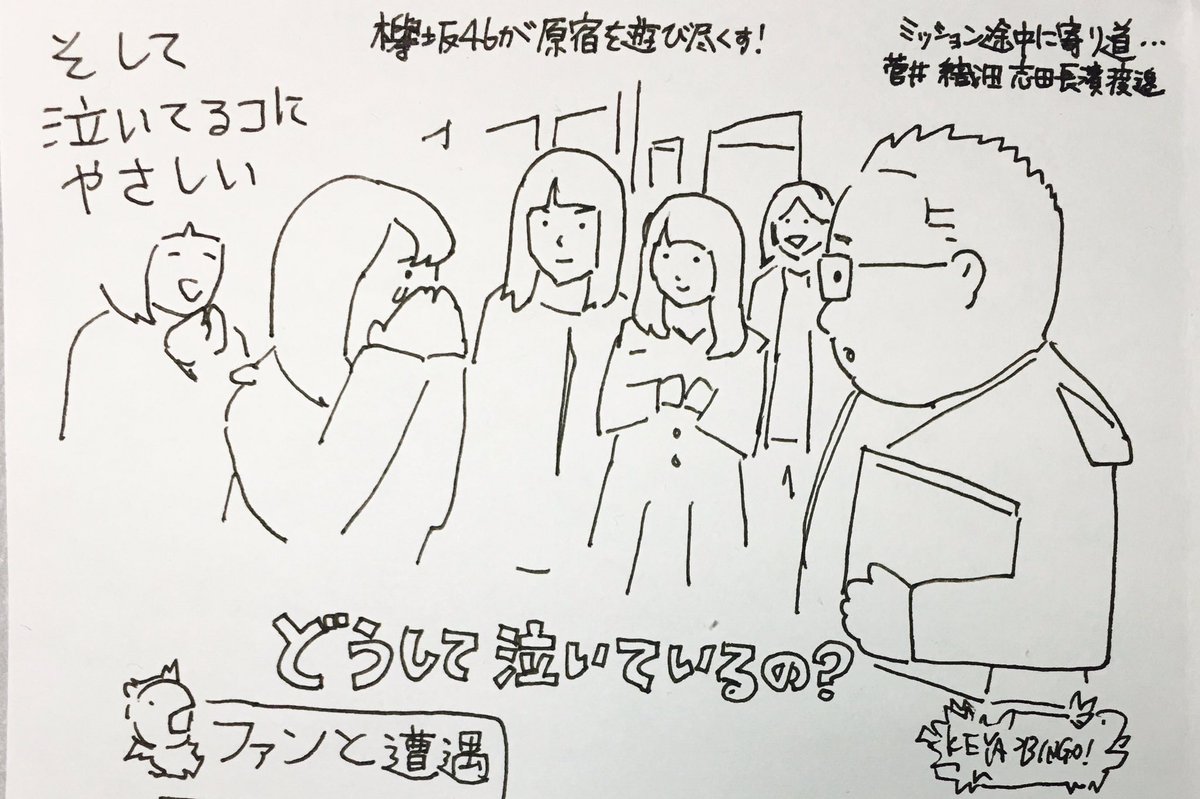 そして
泣いてるコに
やさしい
欅坂46が原宿を遊び尽くす!
ミッション途中に寄り道…
菅井 織田 志田 長濱 渡邉
どうして泣いているの?
ファンと遭遇
KEYABINGO!